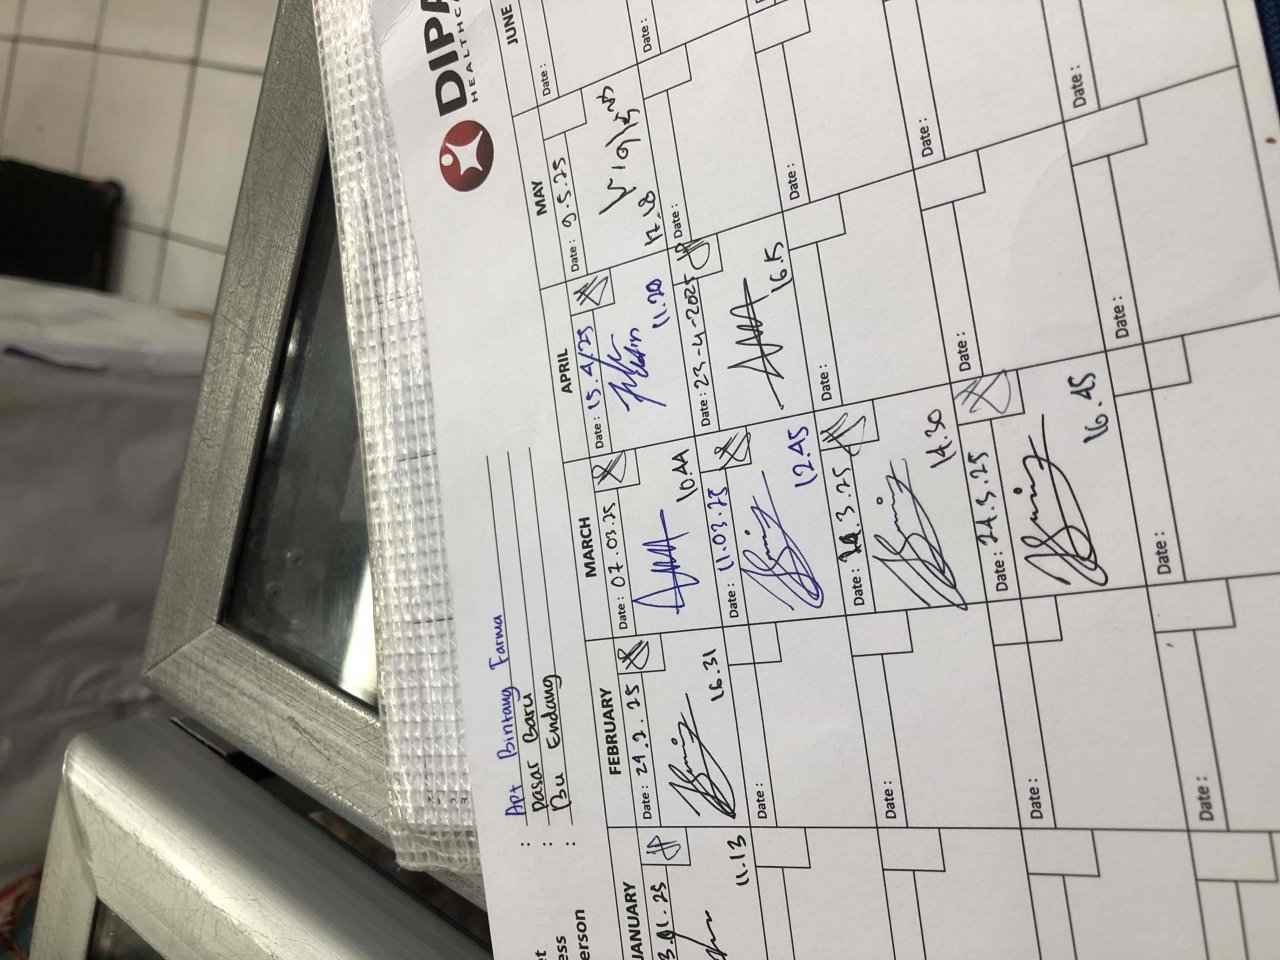 DIPA
HEALTHCA
: Apt Bintang Farma
ess : Pasar Baru
erson : Bu Endang
JANUARY
FEBRUARY
MARCH
APRIL
MAY
JUNE
.01.25
Date : 21.2.25
Date : 07.03.25
Date : 15.4/25
Date : 9.5.25
Date :
11.13
16.31
10.44
11.20
17.18
Date :
Date : 11.03.25
Date : 23-4-2025
Date :
Date :
12.45
16.15
Date :
Date : .3.25
Date :
Date :
14.30
Date :
Date : 24.3.25
Date :
Date :
16.45
Date :
Date :
Date :
Date :